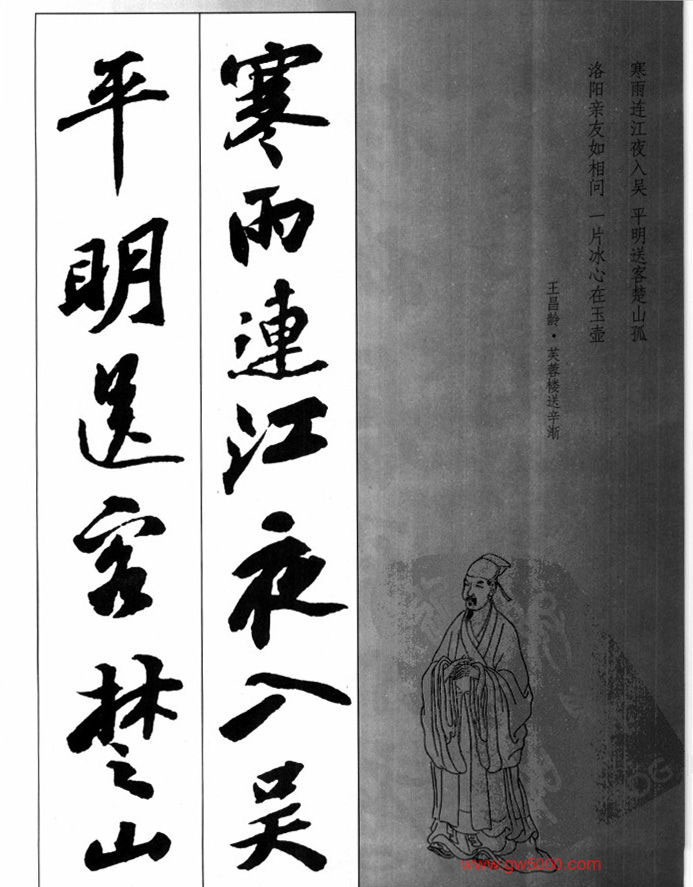 寒雨连江夜入吴 平明送客楚山孤
洛阳亲友如相问 一片冰心在玉壶
王昌龄·芙蓉楼送辛渐
寒雨連江夜入吴
平明送客楚山
www.gw5000.com